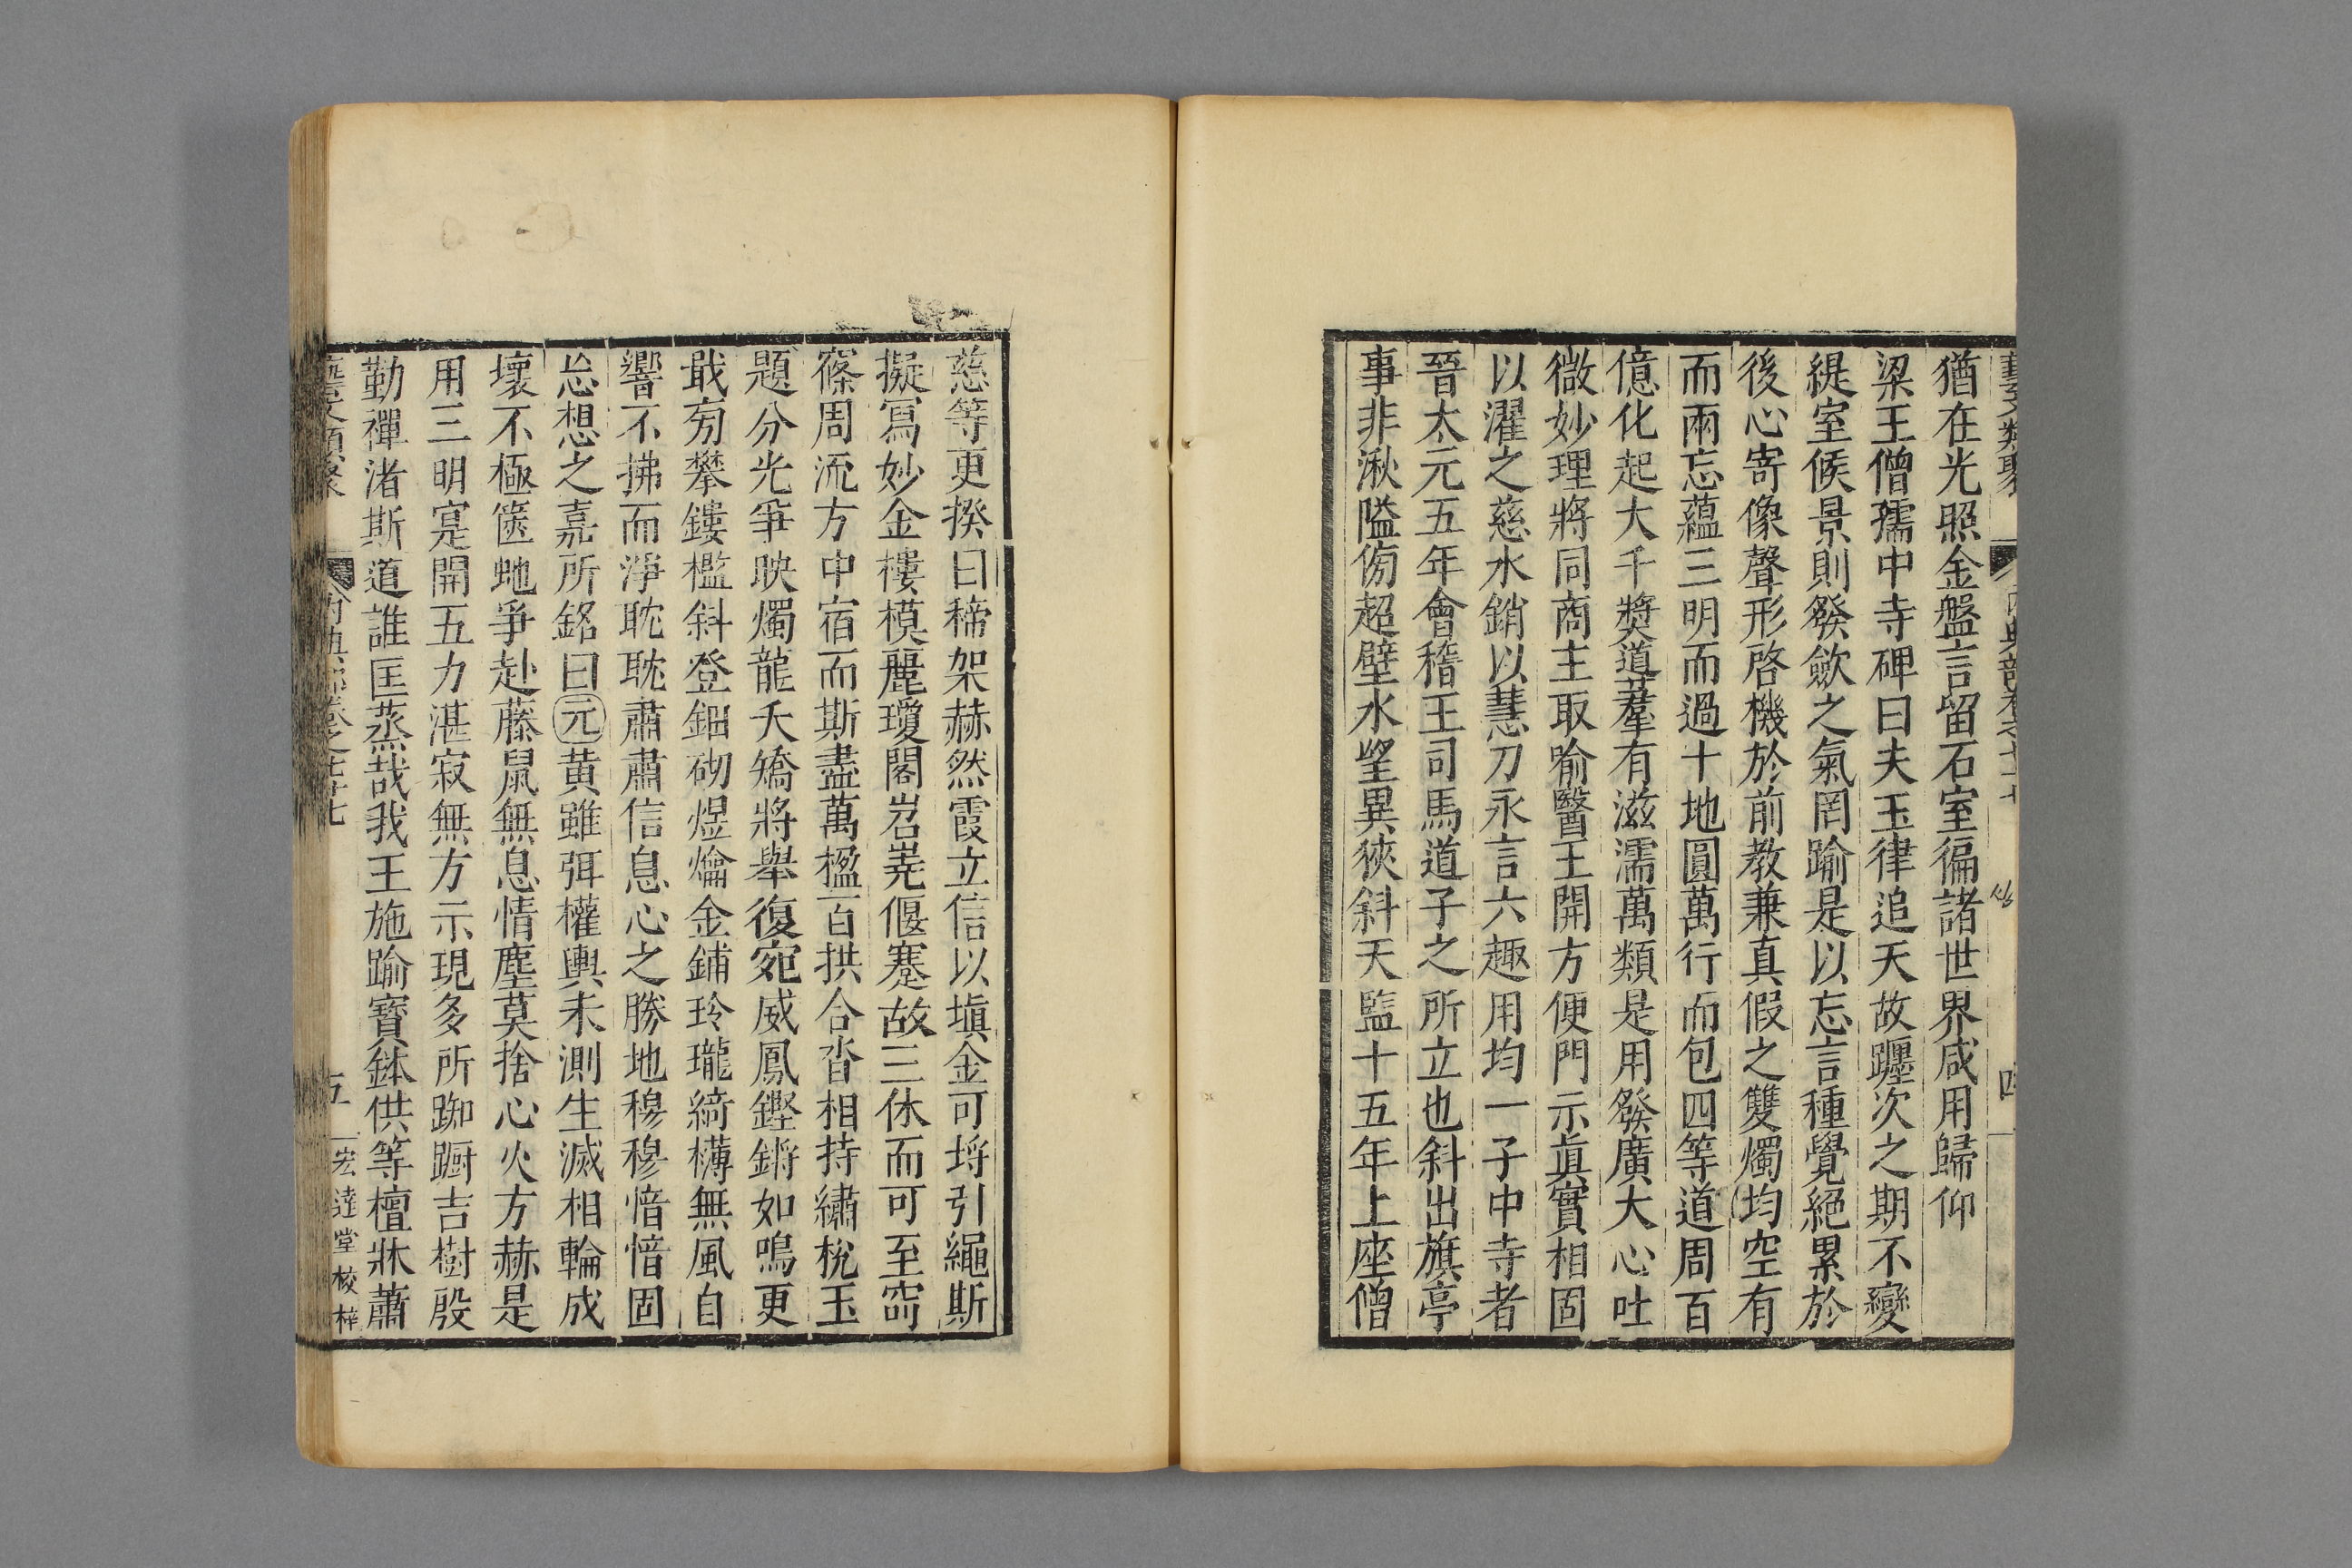 猶在光照金盤言留石室徧諸世界咸用歸仰
梁王僧孺中寺碑曰夫玉律追天故躔次之期不變
緹室候景則發歛之氣罔踰是以忘言種覺絕累於
後心寄像聲形啓機於前教兼真假之雙燭均空有
而兩忘蘊三明而過十地圓萬行而包四等道周百
億化起大千奬道羣有滋濡萬類是用發廣大心吐
微妙理將同商主取喻醫王開方便門示眞實相固
以濯之慈水銷以慧刀永言六趣用均一子中寺者
晉太元五年會稽王司馬道子之所立也斜出旗亭
事非湫隘傍超壁水望異狹斜天監十五年上座僧
慈等更揆日締架赫然霞立信以塡金可埒引繩斯
擬寫妙金樓模麗瓊閣岧嶤偃蹇故三休而可至窈
窱周流方中宿而斯盡萬楹百拱合沓相持繡梲玉
題分光爭映燭龍夭矯將舉復宛威鳳鏗鏘如鳴更
戢旁攀鏤檻斜登鈿砌煜爚金鋪玲瓏綺構無風自
響不拂而淨耽耽肅肅信息心之勝地穆穆愔愔固
忘想之嘉所銘曰元黃雖弭權輿未測生滅相輪成
壞不極篋虵爭赴藤鼠無息情塵莫捨心火方赫是
用三明寔開五力湛寂無方示現多所踟蹰吉樹殷
勤禪渚斯道誰匡蒸哉我王施踰寶鉢供等檀牀蕭
藝文類聚 內典部卷之七十七 五 宏達堂校梓